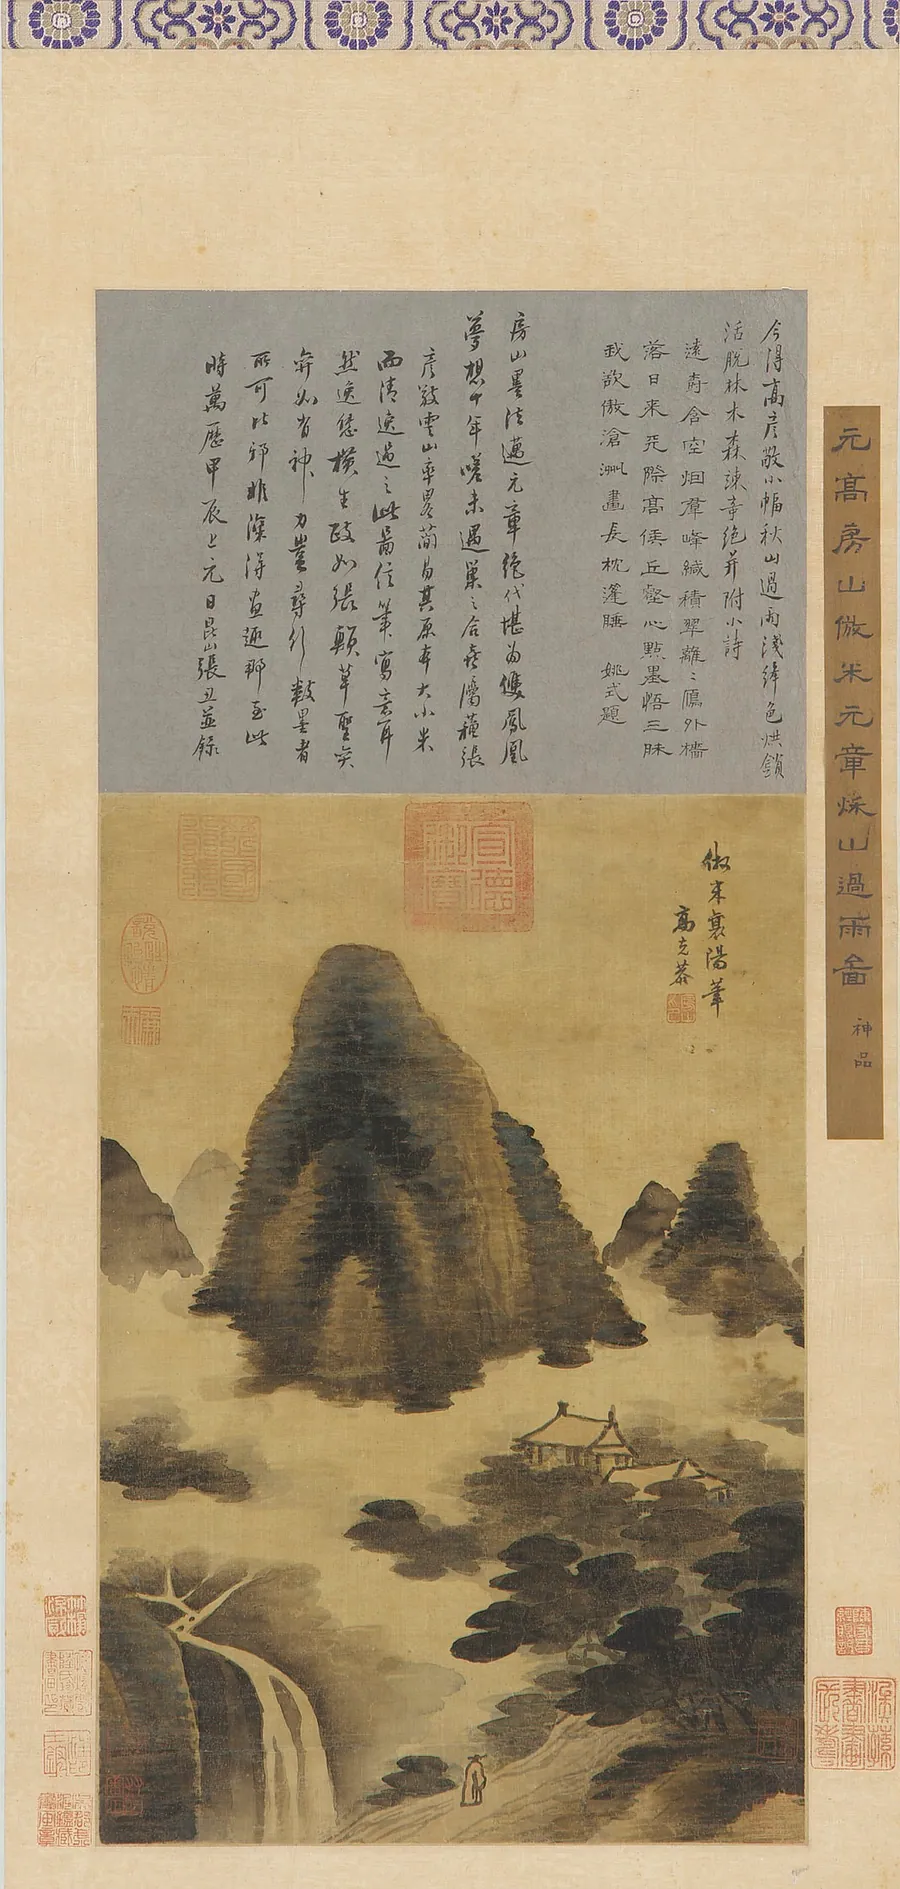 元高房山倣米元章烁山過雨啚
神品
今得高彦敬小幅秋山過雨淺絳色烘鎖
活脫林木森疎幸絶并附小詩
遠岫含空烟群峰緘積翠離〻鴈外檣
落日來天際高倏丘壑心點墨悟三昧
我欲傲滄洲畫長枕蓬睡 姚式題
房山墨法邁元章絶代堪為雙鳳凰
夢想十年嗟未遇巢之合是屬蘓張
彦敬雲山率畧簡易其原本大小米
而清逸過之此啚信筆寫意耳
然逸態橫生政如張顛草聖突
奔如有神力豈尋行數墨者
所可比邪非深得畫趣那至此
時萬曆甲辰上元日昆山張丑並錄
倣米襄陽筆
高克恭
宣德御寶